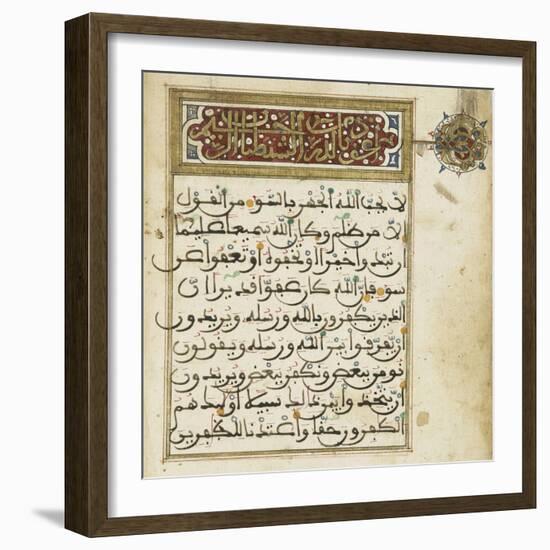 أعوذ بالله من الشيطان الرجيم
لا يحب الله الجهر بالسوء من القول
إلا من ظلم وكان الله سميعا عليما
إن تبدوا خيرا أو تخفوه أو تعفوا عن
سوء فإن الله كان عفوا قديرا إن
الذين يكفرون بالله ورسله ويريدون
أن يفرقوا بين الله ورسله ويقولون
نومن ببعض ونكفر ببعض ويريدون
أن يتخذوا بين ذلك سبيلا أولئك هم
الكفرون حقا وأعتدنا للكفرين